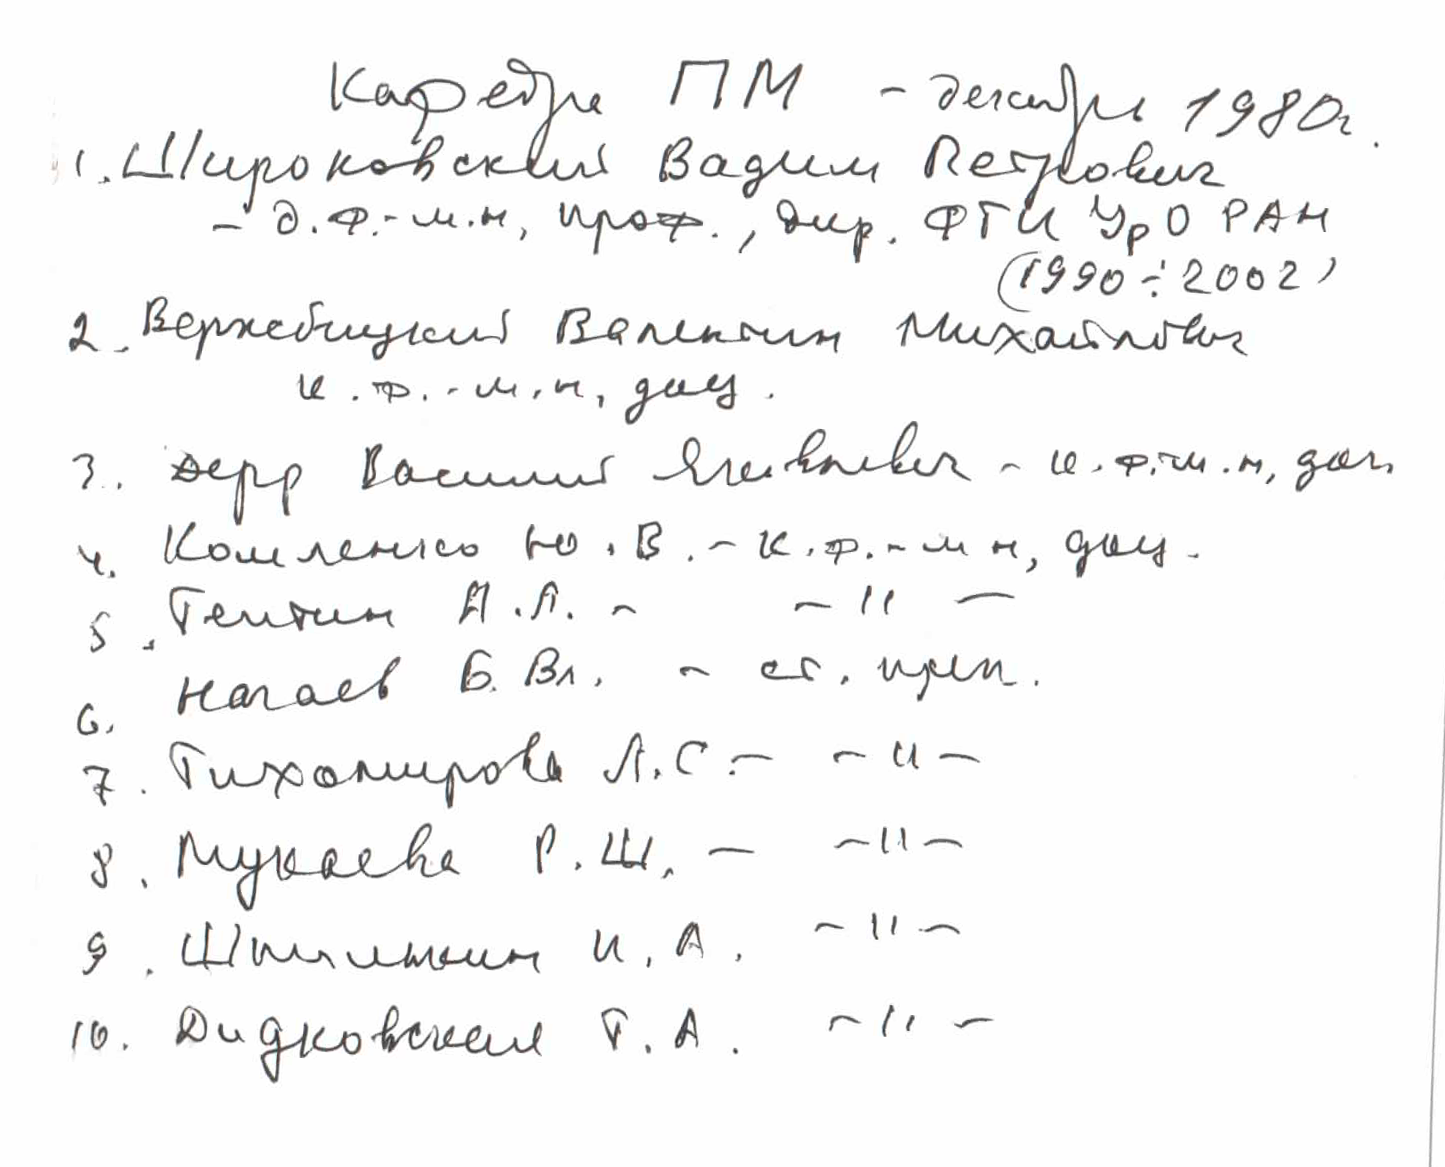 Кафедра ПМ - декабрь 1980г.
1. Широковский Вадим Петрович
- д.ф.-м.н, проф., дир. ФТИ УрО РАН
(1990÷2002)
2. Вержбицкий Валентин Михайлович
к.ф.-м.н, доц.
3. Дерр Василий Яковлевич - к.ф.-м.н, доц.
4. Комленко Ю.В. - к.ф.-м н, доц.
5. Тептин А.Л. - - " -
6. Нагаев Б. Вл. - ст. преп.
7. Тихомирова Л.С. - - " -
8. Мукаева Р.Ш. - - " -
9. Шпилькин И.А. - " -
10. Дидковская Т.А. - " -